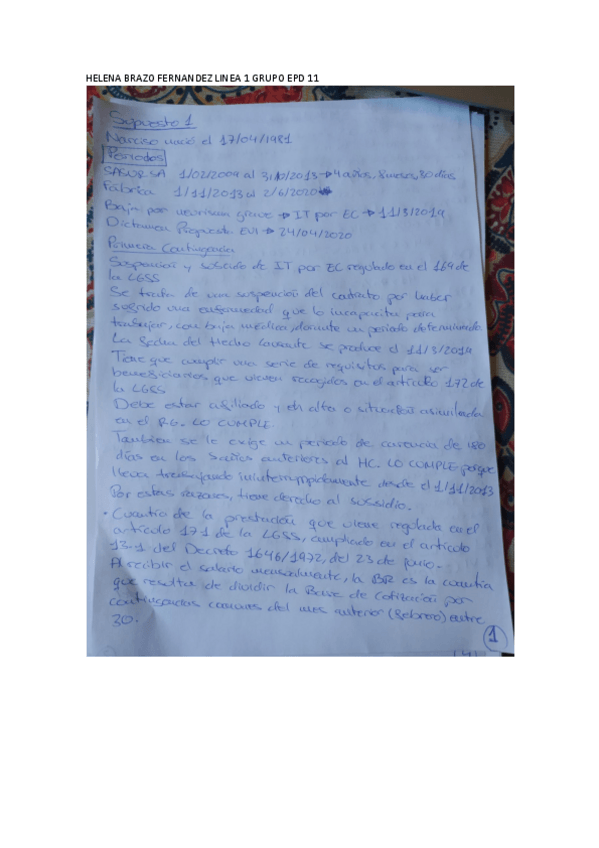 HELENA BRAZO FERNANDEZ LINEA 1 GRUPO EPD 11
Supuesto 1
Narciso nació el 17/04/1981
Periodos
SAGUR SA 1/02/2009 al 31/10/2013 → 4 años, 8 meses, 30 días
Fábrica 1/11/2013 al 2/6/2020
Baja por neurisma grave → IT por EC → 11/3/2019
Dictamen Propuesta EVI → 24/04/2020
Primera Contingencia
Suspensión y subsidio de IT por EC regulado en el 169 de
la LGSS
Se trata de una suspensión del contrato por haber
sufrido una enfermedad que lo incapacita para
trabajar, con baja médica, durante un periodo determinado.
La fecha del Hecho Causante se produce el 11/3/2019
Tiene que cumplir una serie de requisitos para ser
beneficiarios que vienen recogidos en el artículo 172 de
la LGSS
Debe estar afiliado y en alta o situación asimilada
en el RG. LO CUMPLE.
También se le exige un periodo de carencia de 180
días en los 5 años anteriores al HC. LO CUMPLE porque
lleva trabajando ininterrumpidamente desde el 1/11/2013
Por estas razones, tiene derecho al subsidio.
• Cuantía de la prestación que viene regulada en el
artículo 171 de la LGSS, ampliado en el artículo
13.1 del Decreto 1646/1972, del 23 de junio.
Al recibir el salario mensualmente, la BR es la cuantía
que resulta de dividir la Base de Cotización por
contingencias comunes del mes anterior (febrero) entre
30.
1